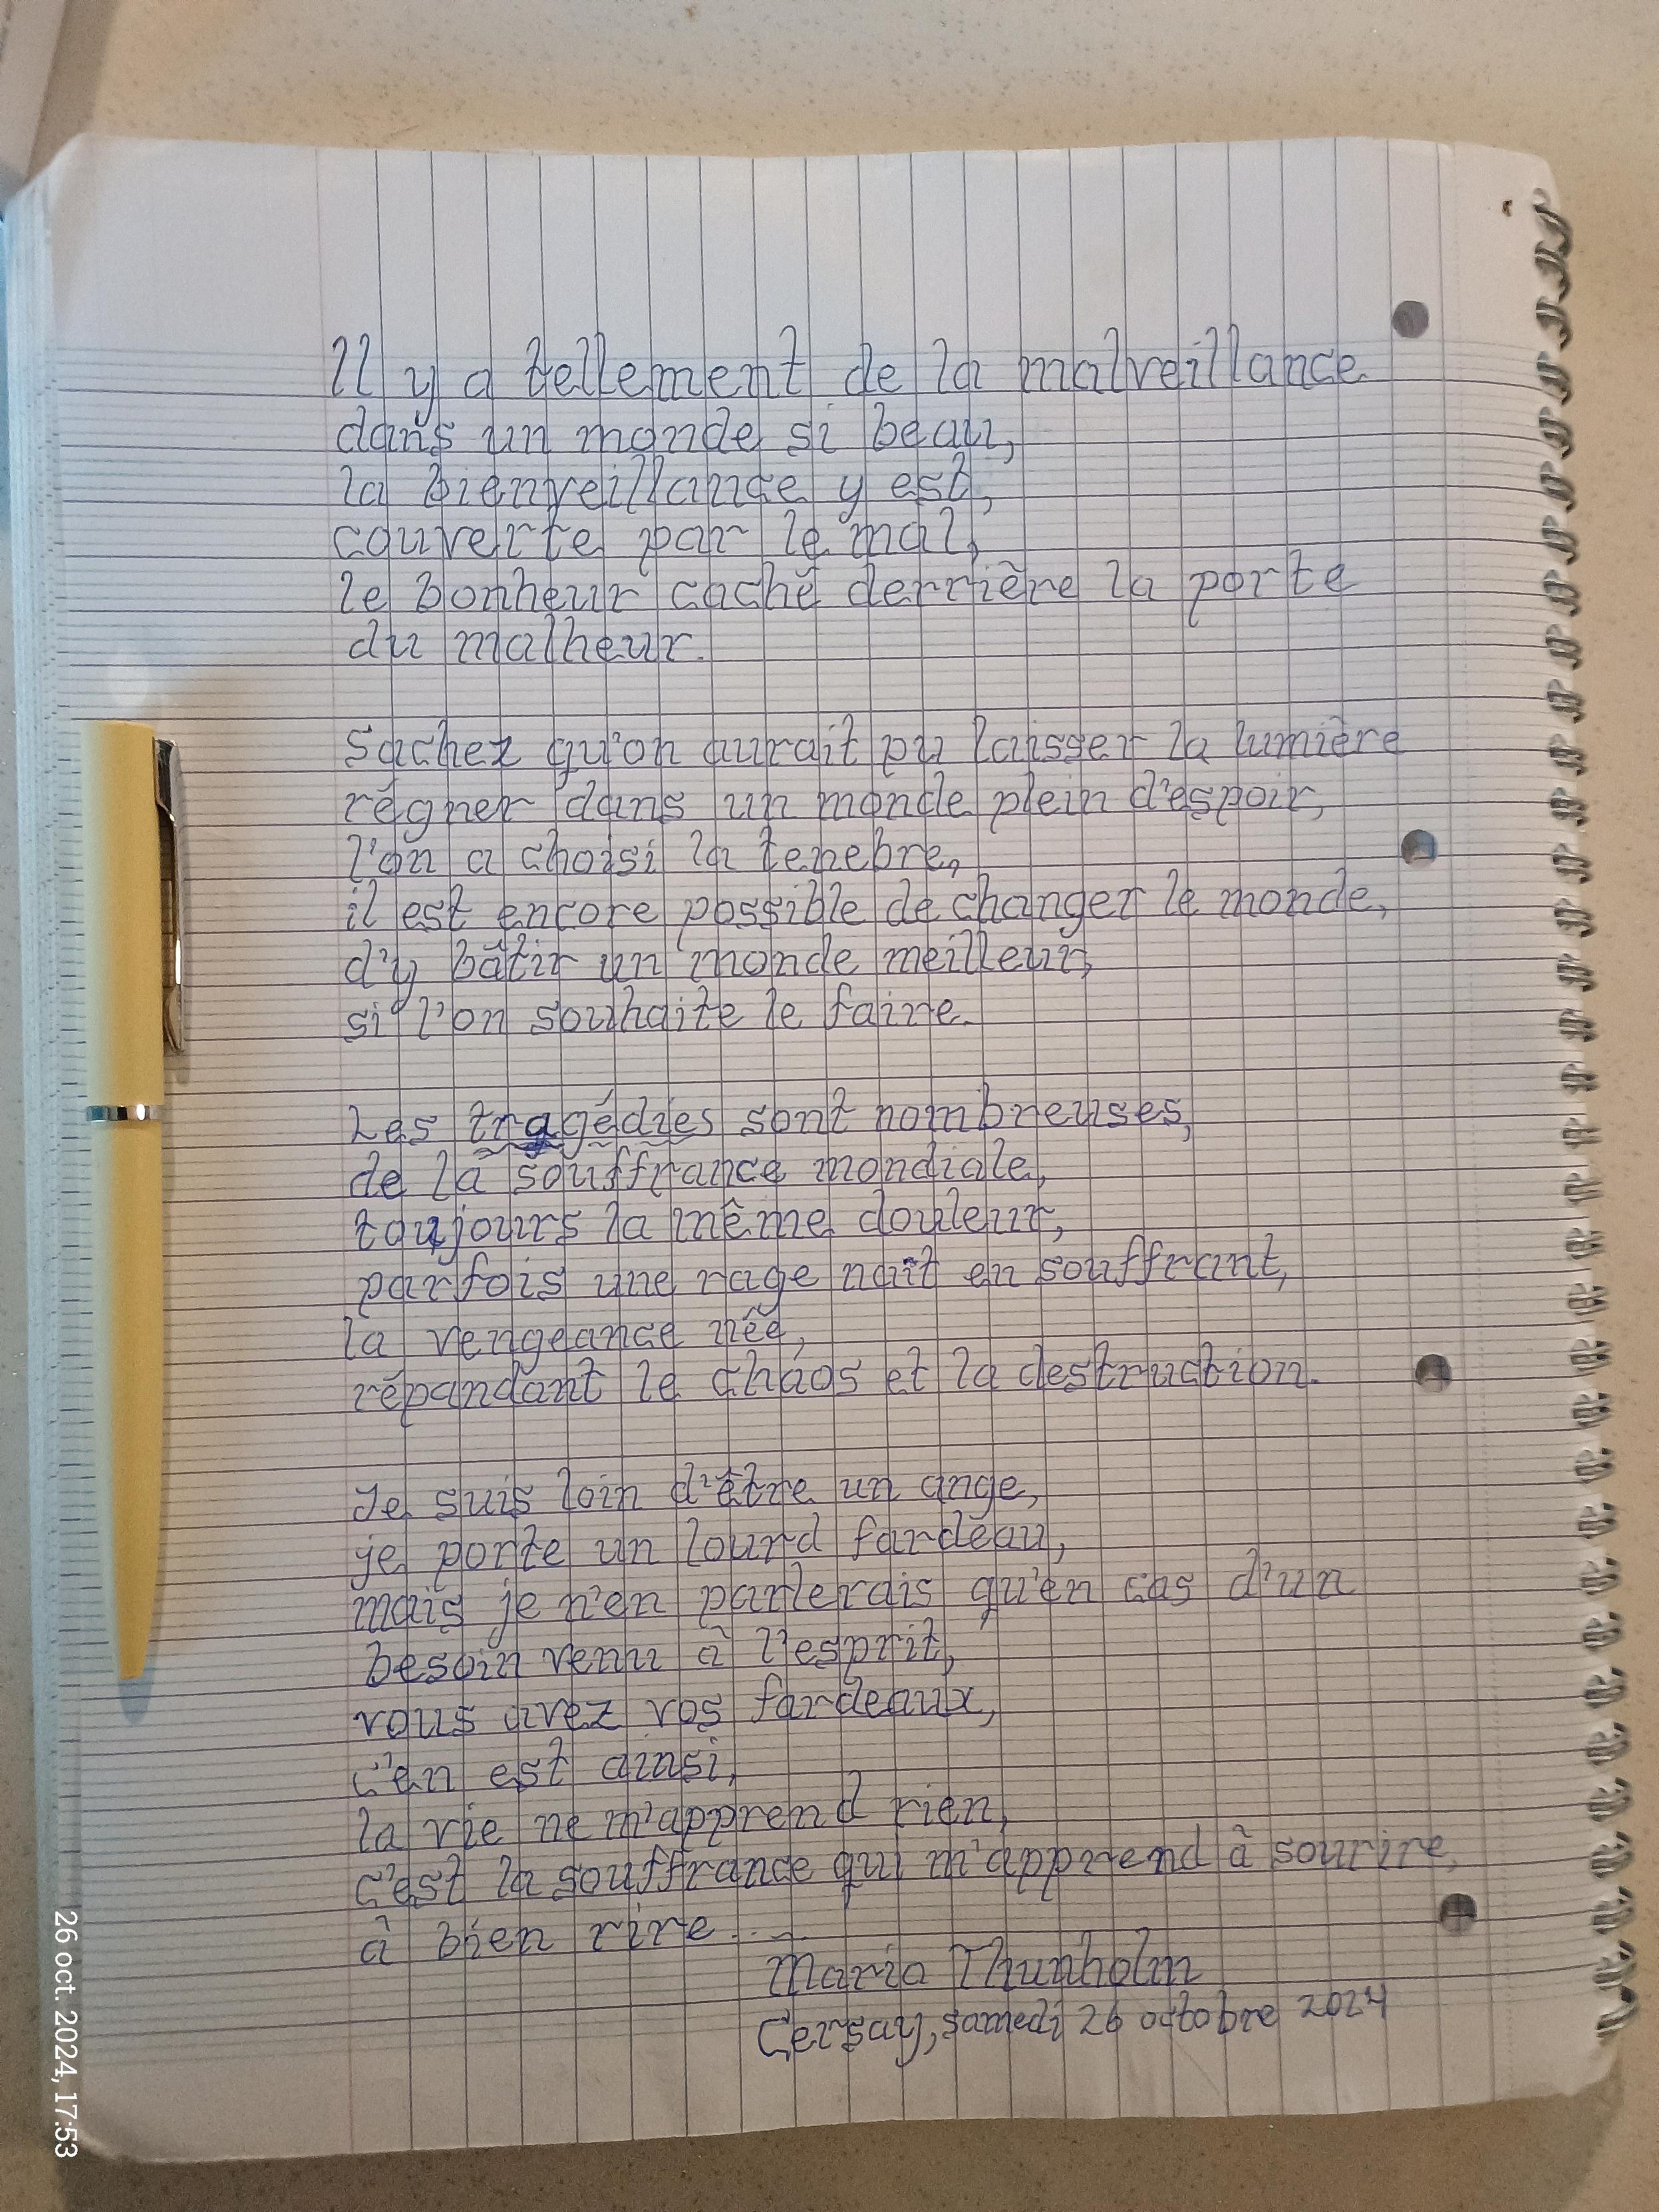 Il y a tellement de la malveillance
dans un monde si beau,
la bienveillance y est,
couverte par le mal,
le bonheur caché derrière la porte
du malheur.
Sachez qu'on aurait pu laisser la lumière
régner dans un monde plein d'espoir,
l'on a choisi la tenebre,
il est encore possible de changer le monde,
d'y bâtir un monde meilleur,
si l'on souhaite le faire.
Les tragédies sont nombreuses,
de la souffrance mondiale,
toujours la même douleur,
parfois une rage naît en souffrant,
la vengeance née,
répandant le chaos et la destruction.
Je suis loin d'être un ange,
je porte un lourd fardeau,
mais je n'en parlerais qu'en cas d'un
besoin venu à l'esprit,
vous avez vos fardeaux,
c'en est ainsi,
la vie ne m'apprend rien,
c'est la souffrance qui m'apprend à sourire,
à bien rire...
Mario Thunholm
Cersay, samedi 26 octobre 2024
26 oct. 2024, 17:53